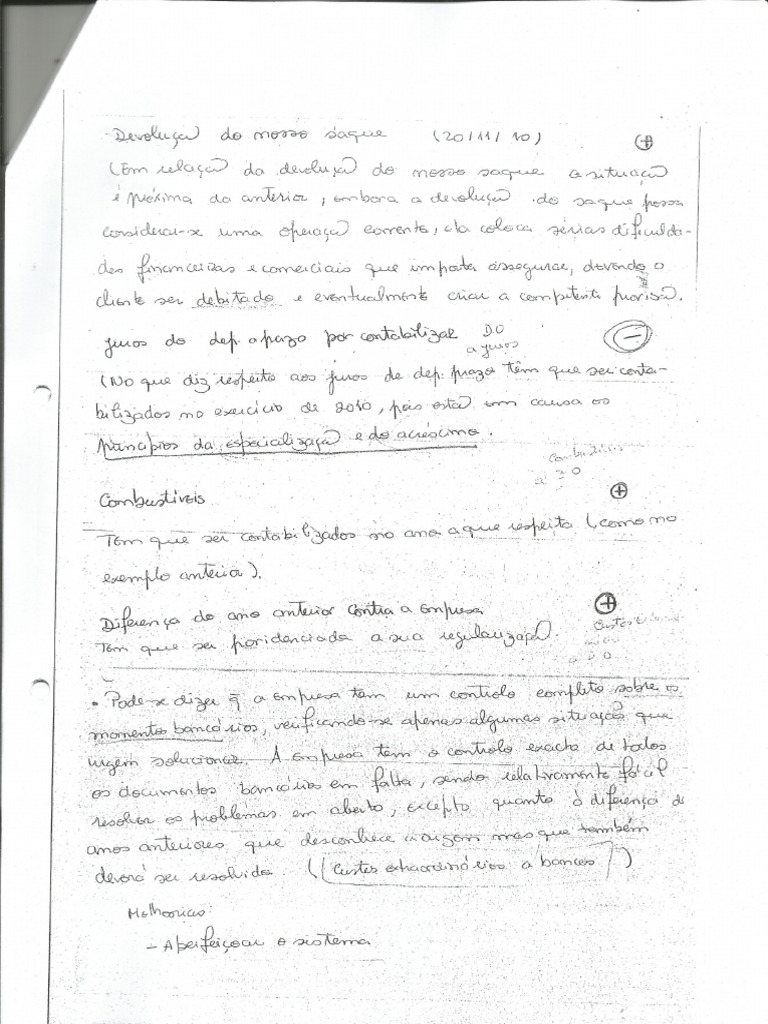 Devoluçã do nosso saque (20/11/10) +
(Em relaçã da devoluçã do nosso saque a situaçã
é próxima da anterior, embora a devoluçã do saque possa
considerar-se uma operaçã corrente, ela coloca sérias dificulda-
des financeiras e comerciais que importa assegurar, devendo o
cliente ser debitado e eventualmente criar a competente provisã.
Juros do dep. a prazo por contabilizar DO
a juros –
(No que diz respeito aos juros de dep. prazo têm que ser conta-
bilizados no exercício de 2010, pois está em causa os
princípios da especializaçã e do acréscimo.
a DO
Combustíveis +
Tem que ser contabilizados no ano a que respeita (como no
exemplo anterior).
Diferença do ano anterior contra a empresa +
Tem que ser providenciada a sua regularizaçã.
• Pode-se dizer q̃ a empresa tem um controlo completo sobre os
momentos bancários, verificando-se apenas algumas situaçõs que
urgem solucionar. A empresa tem o controlo exacto de todos
os documentos bancários em falta, sendo relativamente fácil
resolver os problemas em aberto, excepto quanto à diferença de
anos anteriores que desconhece a origem mas que também
deverá ser resolvida. (Custos extraordinários a bancos)
Melhorias:
– Aperfeiçoar o sistema